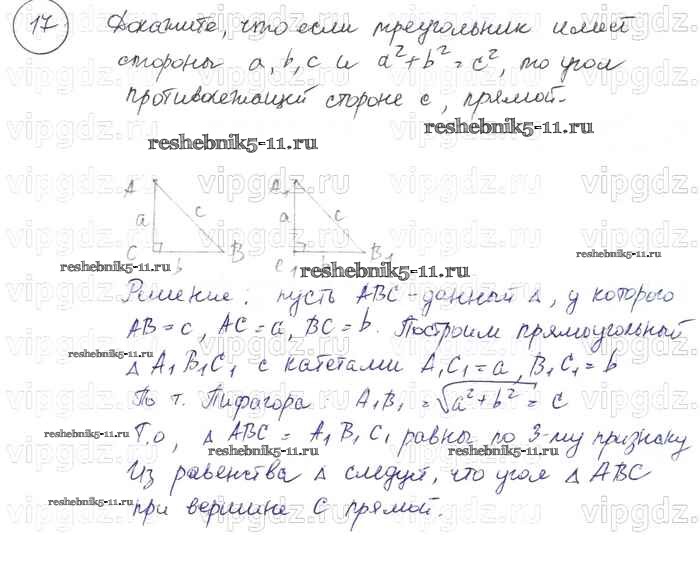 17. Докажите, что если треугольник имеет
стороны a, b, c и a² + b² = c², то угол
противолежащий стороне c, прямой.
reshebnik5-11.ru
reshebnik5-11.ru
A a c C b B
A₁ a c C₁ b B₁
reshebnik5-11.ru
reshebnik5-11.ru
reshebnik5-11.ru
Решение: пусть ABC - данный Δ, у которого
AB = c, AC = a, BC = b. Построим прямоугольный
Δ A₁B₁C₁ с катетами A₁C₁ = a, B₁C₁ = b
reshebnik5-11.ru
reshebnik5-11.ru
По т. Пифагора: A₁B₁ = √a² + b² = c
Т.о, Δ ABC = A₁B₁C₁ равны по 3-му признаку
reshebnik5-11.ru
reshebnik5-11.ru
Из равенства Δ следует, что угол Δ ABC
при вершине C прямой.
reshebnik5-11.ru
reshebnik5-11.ru
vipgdz.ru